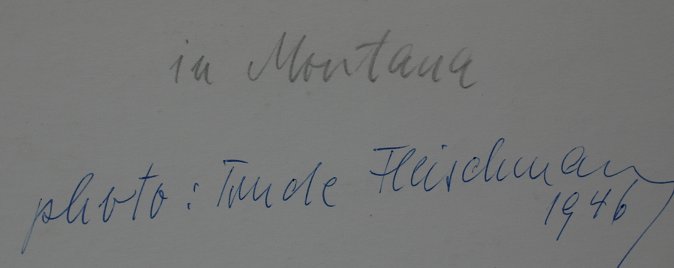 in Montana
photo: Trude Fleischmann
1946